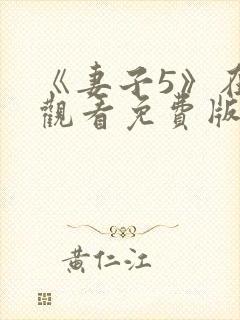 《妻子5》在
觀看免費版
黃仁江